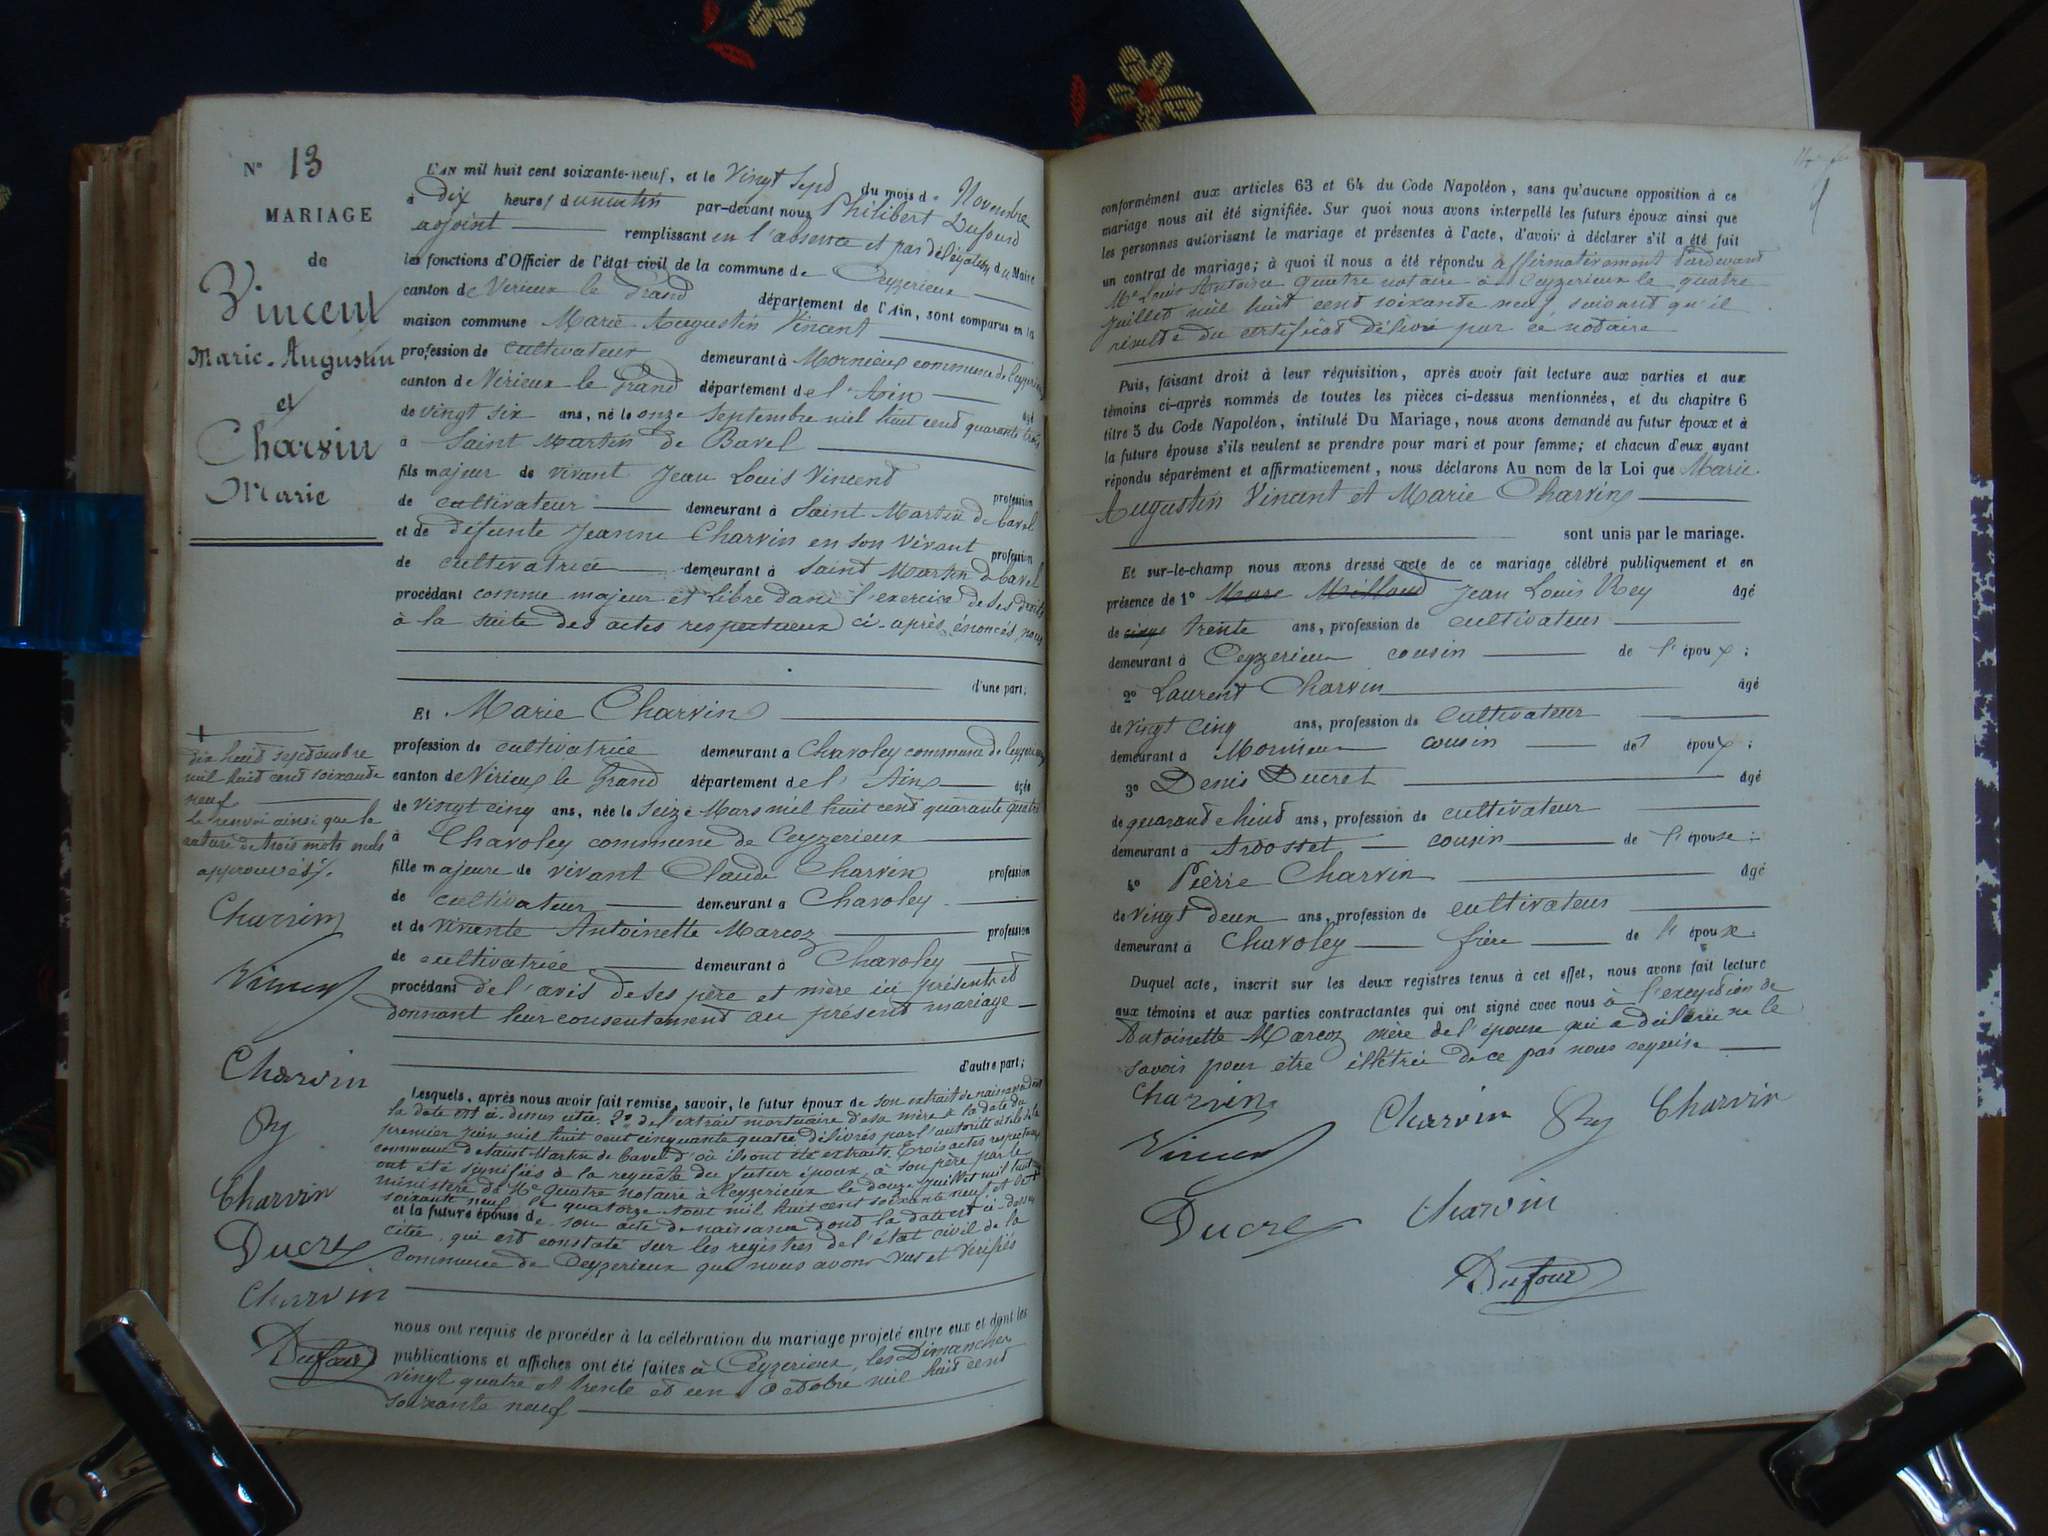 N° 13
MARIAGE
de
Vincent
Marie-Augustin
et
Charvin
Marie
L'AN mil huit cent soixante-neuf, et le Vingt Sept du mois de Novembre
à dix heures du matin par-devant nous Philibert Dufour
adjoint remplissant en l'absence et par délégation du Maire
les fonctions d'Officier de l'état civil de la commune de Ceyzerieux
canton de Virieux le Grand département de l'Ain, sont comparus en la
maison commune Marie Augustin Vincent
profession de cultivateur demeurant à Mornieux commune de Ceyzerieux
canton de Virieux le Grand département de l'Ain âgé
de vingt six ans, né le onze Septembre mil huit cent quarante trois
à Saint Martin de Bavel
fils majeur de vivant Jean Louis Vincend
profession
de cultivateur demeurant à Saint Martin de bavel
et de défunte Jeanne Charvin en son vivant profession
de cultivatrice demeurant à Saint Martin de bavel
procédant comme majeur et libre dans l'exercice de ses droits
à la suite des actes respectueux ci-après énoncés, nous
d'une part;
Et Marie Charvin
profession de cultivatrice demeurant à Chavoley commune de Ceyzerieux
canton de Virieux le Grand département de l'Ain âgée
de vingt cinq ans, née le Seize Mars mil huit cend quarante quatre
à Chavoley commune de Ceyzerieux
fille majeure de vivant Claude Charvin profession
de cultivateur demeurant à Chavoley
et de vivante Antoinette Marcoz profession
de cultivatrice demeurant à Chavoley
procédant de l'avis de ses père et mère ici présents et
donnant leur consentement au présent mariage
d'autre part;
Lesquels, après nous avoir fait remise, savoir, le futur époux de son extrait de naissance dont
la date est ci-dessus citée. 2° de l'extrait mortuaire de sa mère à la date du
premier juin mil huit cent cinquante quatre délivrés par l'autorité civile de la
commune de Saint Martin de bavel d'où ils ont été extraits. Trois actes respectueux
ont été signifiés à la requête du futur époux, à son père par le
ministère de Me Quatre notaire à Ceyzerieux le douze juillet mil huit cent
soixante neuf, le quatorze aout mil huit cent soixante neuf et le +
et la future épouse de son acte de naissance dont la date est ci-dessus
citée, qui est constaté sur les registres de l'état civil de la
commune de Ceyzerieux que nous avons vus et vérifiés
nous ont requis de procéder à la célébration du mariage projeté entre eux et dont les
publications et affiches ont été faites à Ceyzerieux, les Dimanches
vingt quatre et trente et un Octobre mil huit cend
soixante neuf
+
dix huit septembre
mil huit cent soixante
neuf
le renvoi ainsi que la
rature de trois mots nuls
approuvés.
Charvin
Vincent
Charvin
Rey
Charvin
Ducret
Charvin
Dufour
conformément aux articles 63 et 64 du Code Napoléon, sans qu'aucune opposition à ce
mariage nous ait été signifiée. Sur quoi nous avons interpellé les futurs époux ainsi que
les personnes autorisant le mariage et présentes à l'acte, d'avoir à déclarer s'il a été fait
un contrat de mariage; à quoi il nous a été répondu affirmativement Pardevant
Me Louis Antoine Quatre notaire à Ceyzerieux le quatre
juillet mil huit cend soixante neuf suivant qu'il
résulte du certificat délivré par ce notaire
Puis, faisant droit à leur réquisition, après avoir fait lecture aux parties et aux
témoins ci-après nommés de toutes les pièces ci-dessus mentionnées, et du chapitre 6
titre 5 du Code Napoléon, intitulé Du Mariage, nous avons demandé au futur époux et à
la future épouse s'ils veulent se prendre pour mari et pour femme; et chacun d'eux ayant
répondu séparément et affirmativement, nous déclarons Au nom de la Loi que Marie
Augustin Vincent et Marie Charvin
sont unis par le mariage.
Et sur-le-champ nous avons dressé acte de ce mariage célébré publiquement et en
présence de 1° Marc Milloud Jean Louis Rey âgé
de cinq trente ans, profession de cultivateur
demeurant à Ceyzerieux cousin de l'époux;
2° Laurent Charvin âgé
de vingt cinq ans, profession de cultivateur
demeurant à Mornieux cousin de l'époux;
3° Denis Ducret âgé
de quarante huit ans, profession de cultivateur
demeurant à Ardosset cousin de l'épouse;
4° Pierre Charvin âgé
de vingt deux ans, profession de cultivateur
demeurant à Chavoley frère de l'épouse.
Duquel acte, inscrit sur les deux registres tenus à cet effet, nous avons fait lecture
aux témoins et aux parties contractantes qui ont signé avec nous à l'exception de
Antoinette Marcoz mère de l'épouse qui a déclaré ne le
savoir pour être illétrée de ce par nous requise
Charvin
Charvin Rey Charvin
Vincent
Ducret Charvin
Dufour